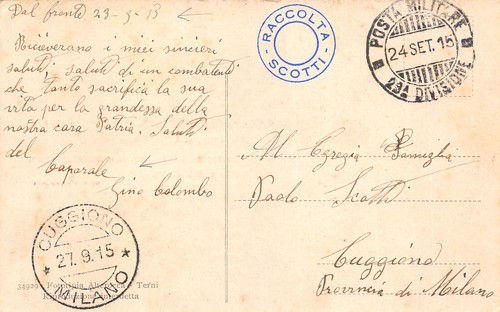 Dal fronte 23-9-15
Riceverano i miei sinceri
saluti saluti di un combatenti
che tanto sacrifica la sua
vita per la grandessa della
nostra cara Patria. Saluti
del Caporale
Gino Colombo
RACCOLTA
SCOTTI
POSTA MILITARE
24 SET. 15
23A DIVISIONE
Al Egregia Famiglia
Paolo Scotti
Cuggiono
Provincia di Milano
CUGGIONO
27.9.15
MILANO
34929 Fototipia Alterocca Terni
Riproduzione interdetta